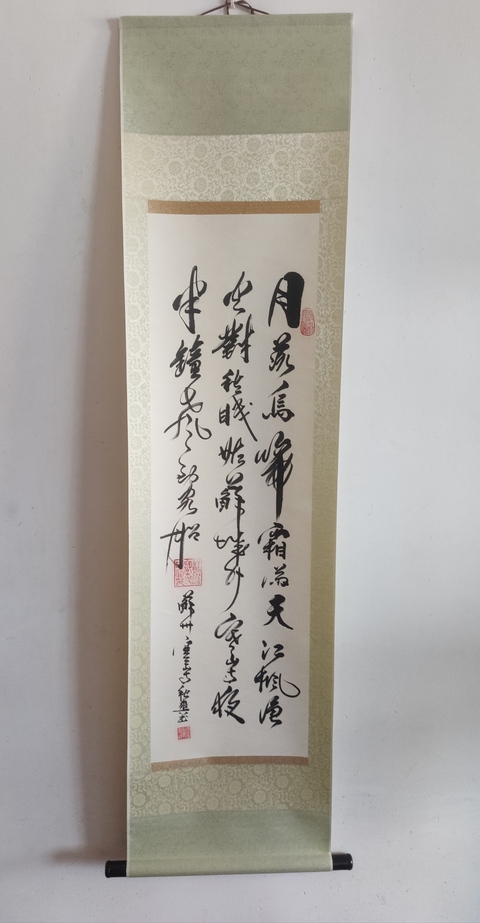 月落烏啼霜滿天江楓漁
火對愁眠姑蘇城外寒山寺夜
半鐘聲到客船
蘇州寒山寺秋爽